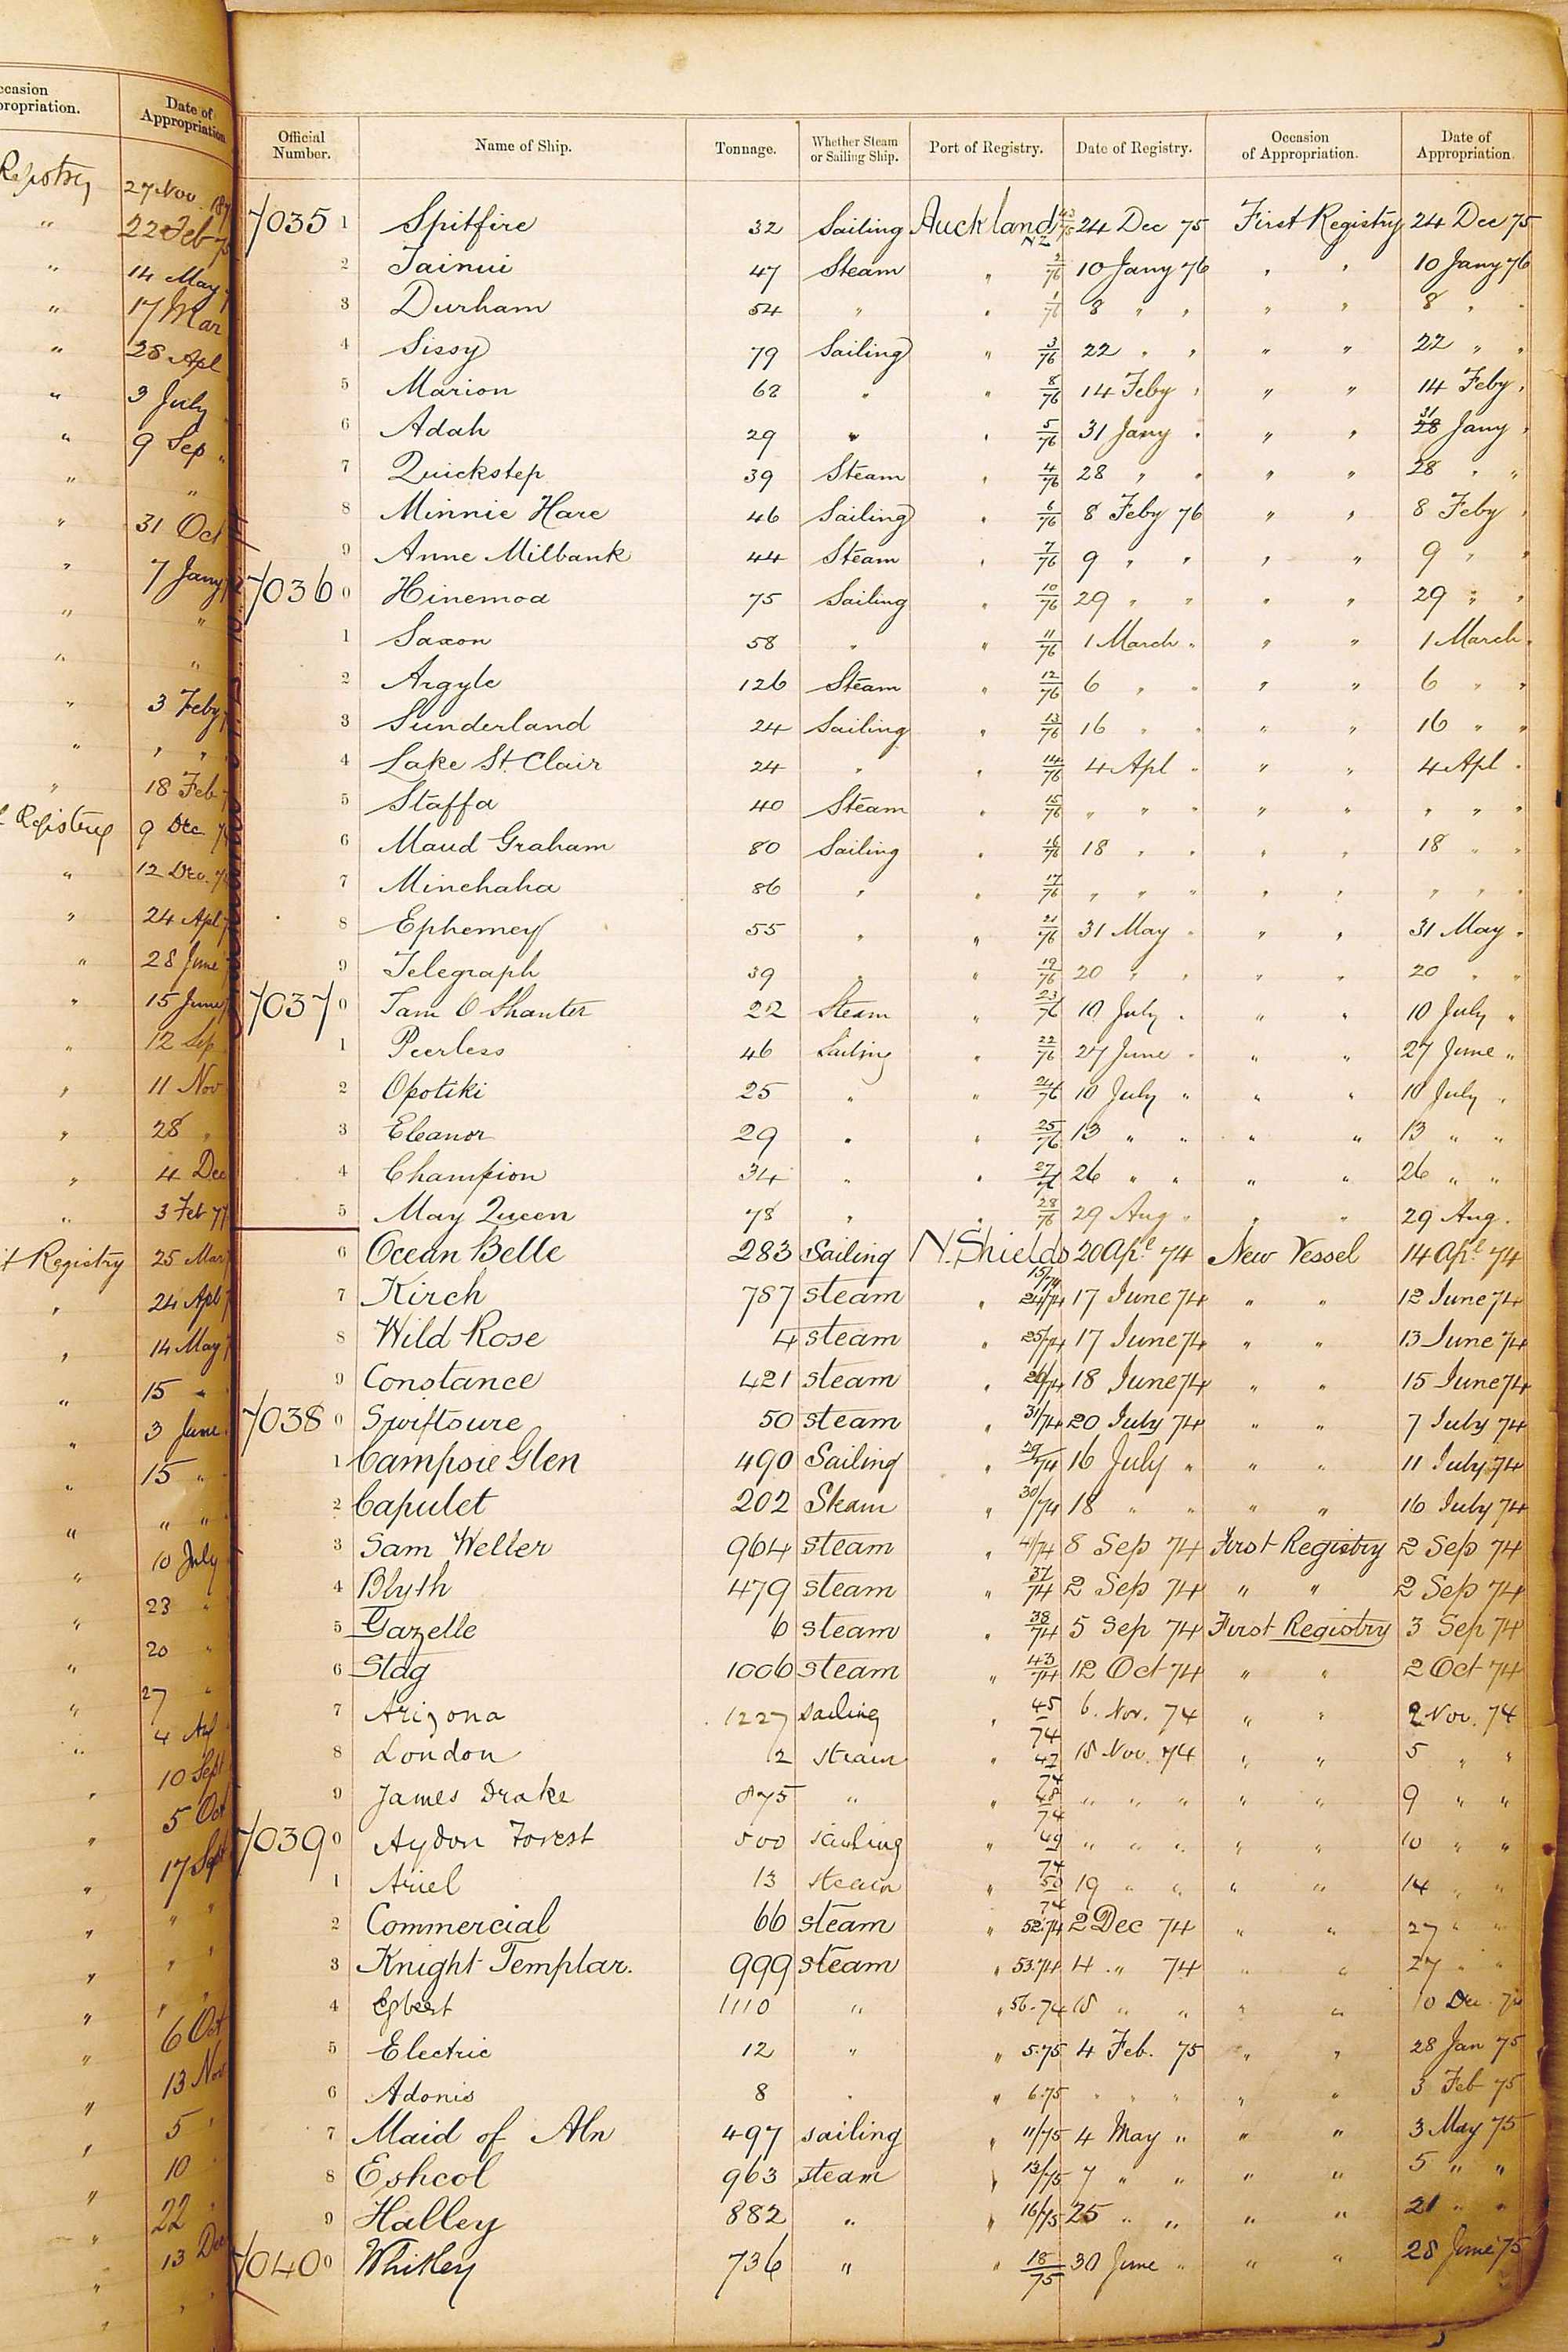 ccasion Date of
propriation. Appropriation
Registry 27 Nov. 187
" 22 Feb 75
" 14 May
" 17 Mar
" 28 Apl
" 3 July
" 9 Sep "
" "
" 31 Oct
" 7 Jany
" "
" "
" 3 Feby
" " "
" 18 Feb
Registry 9 Dec
" 12 Dec.
" 24 Apl
" 28 June
" 15 June
" 12 Sep
" 11 Nov
" 28 "
" 4 Dec
" 3 Feb 77
t Registry 25 Mar
" 24 Apl
" 14 May
" 15 "
" 3 June
" 15 "
" " "
" 10 July
" 23 "
" 20 "
" 27 "
" 4
" 10 Sept
" 5 Oct
" 17 Sept
" " "
" "
" "
" 6 Oct
" 13 Nov
" 5 "
" 10
" 22 "
" 13 Dec
" "
Official Number. Name of Ship. Tonnage. Whether Steam or Sailing Ship. Port of Registry. Date of Registry. Occasion of Appropriation. Date of Appropriation.
7035 1 Spitfire 32 Sailing Auckland NZ 43/75 24 Dec 75 First Registry 24 Dec 75
2 Tainui 47 Steam " 2/76 10 Jany 76 " " 10 Jany 76
3 Durham 54 " " 1/76 8 " " " " 8 " "
4 Sissy 79 Sailing " 3/76 22 " " " " 22 " "
5 Marion 68 " " 8/76 14 Feby " " " 14 Feby "
6 Adah 29 " " 5/76 31 Jany " " " 31 28 Jany "
7 Quickstep 39 Steam " 4/76 28 " " " " 28 " "
8 Minnie Hare 46 Sailing " 6/76 8 Feby 76 " " 8 Feby "
9 Anne Milbank 44 Steam " 7/76 9 " " " " 9 " "
7036 0 Hinemoa 75 Sailing " 10/76 29 " " " " 29 " "
1 Saxon 58 " " 11/76 1 March " " " 1 March "
2 Argyle 126 Steam " 12/76 6 " " " " 6 " "
3 Sunderland 24 Sailing " 13/76 16 " " " " 16 " "
4 Lake St. Clair 24 " " 14/76 4 Apl " " " 4 Apl "
5 Staffa 40 Steam " 15/76 " " " " " " " "
6 Maud Graham 80 Sailing " 16/76 18 " " " " 18 " "
7 Minehaha 86 " " 17/76 " " " " " " " "
8 Ephemey 55 " " 21/76 31 May " " " 31 May "
9 Telegraph 39 " " 19/76 20 " " " " 20 " "
7037 0 Tam O Shanter 22 Steam " 23/76 10 July " " " 10 July "
1 Peerless 46 Sailing " 22/76 27 June " " " 27 June "
2 Opotiki 25 " " 24/76 10 July " " " 10 July "
3 Eleanor 29 " " 25/76 13 " " " " 13 " "
4 Champion 34 " " 27/76 26 " " " " 26 " "
5 May Queen 78 " " 28/76 29 Aug " " " 29 Aug.
6 Ocean Belle 283 Sailing N. Shields 15/74 20 Apl 74 New Vessel 14 Apl 74
7 Kirch 787 steam " 24/74 17 June 74 " " 12 June 74
8 Wild Rose 4 steam " 25/74 17 June 74 " " 13 June 74
9 Constance 421 steam " 26/74 18 June 74 " " 15 June 74
7038 0 Swiftsure 50 steam " 31/74 20 July 74 " " 7 July 74
1 Campsie Glen 490 Sailing " 29/74 16 July " " " 11 July 74
2 Capulet 202 Steam " 30/74 18 " " " " 16 July 74
3 Sam Weller 964 steam " 41/74 8 Sep 74 First Registry 2 Sep 74
4 Blyth 479 steam " 37/74 2 Sep 74 " " 2 Sep 74
5 Gazelle 6 steam " 38/74 5 Sep 74 First Registry 3 Sep 74
6 Stag 1006 steam " 43/74 12 Oct 74 " " 2 Oct 74
7 Arizona 1227 sailing " 45/74 6. Nov. 74 " " 2 Nov. 74
8 London 2 steam " 47/74 18 Nov. 74 " " 5 " "
9 James Drake 875 " " 48/74 " " " " " 9 " "
7039 0 Aydon Forest 500 sailing " 49/74 " " " " " 10 " "
1 Ariel 13 steam " 50/74 19 " " " " 14 " "
2 Commercial 66 steam " 52.74 2 Dec 74 " " 27 " "
3 Knight Templar. 999 steam " 53.74 4 " 74 " " 27 " "
4 Egbert 1110 " " 56.74 18 " " " " 10 Dec. 74
5 Electric 12 " " 5.75 4 Feb. 75 " " 28 Jan 75
6 Adonis 8 " " 6.75 " " " " " 3 Feb 75
7 Maid of Aln 497 sailing " 11/75 4 May " " " 3 May 75
8 Eshcol 963 steam " 13/75 7 " " " " 5 " "
9 Halley 882 " " 16/75 25 " " " " 21 " "
7040 0 Whitley 736 " " 18/75 30 June " " " 28 June 75